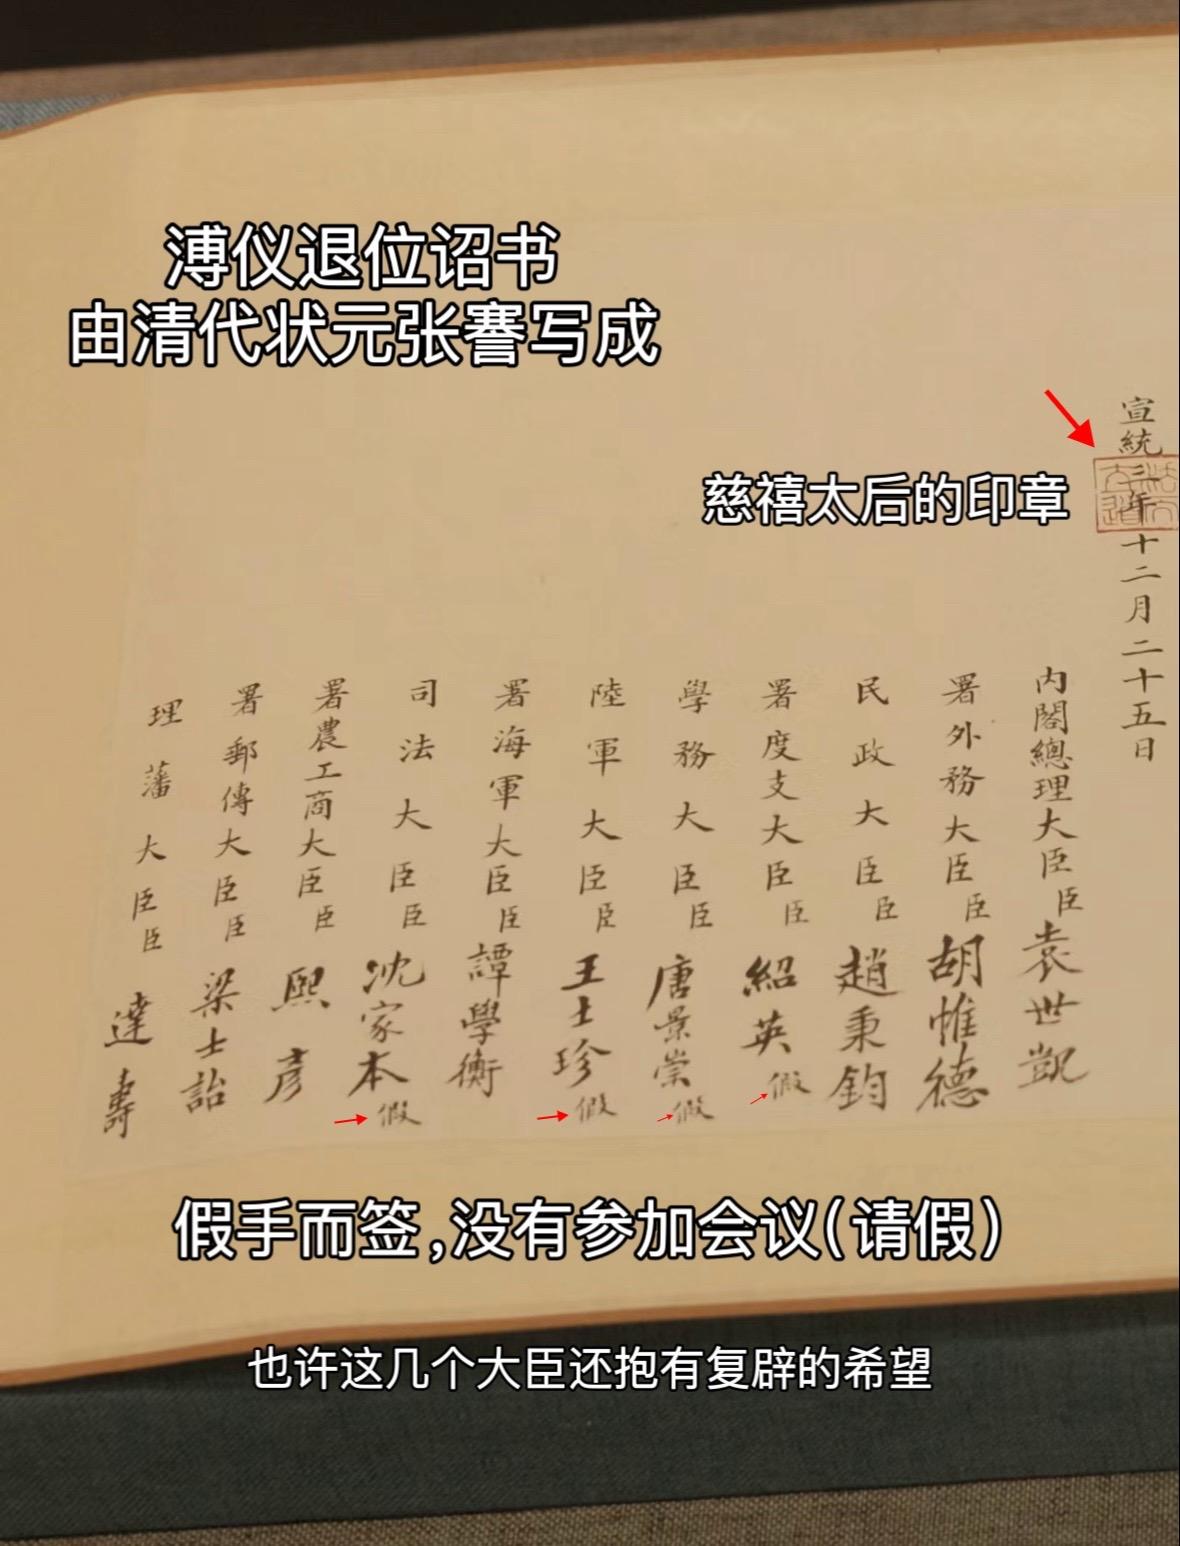 溥仪退位诏书
由清代状元张謇写成
慈禧太后的印章
宣統三年十二月二十五日
内閣總理大臣臣袁世凱
署外務大臣臣胡惟德
民政大臣臣趙秉鈞
署度支大臣臣紹英假
學務大臣臣唐景崇假
陸軍大臣臣王士珍假
署海軍大臣臣譚學衡
司法大臣臣沈家本假
署農工商大臣臣熙彥
署郵傳大臣臣梁士詒
理藩大臣臣達壽
假手而签,没有参加会议(请假)
也许这几个大臣还抱有复辟的希望